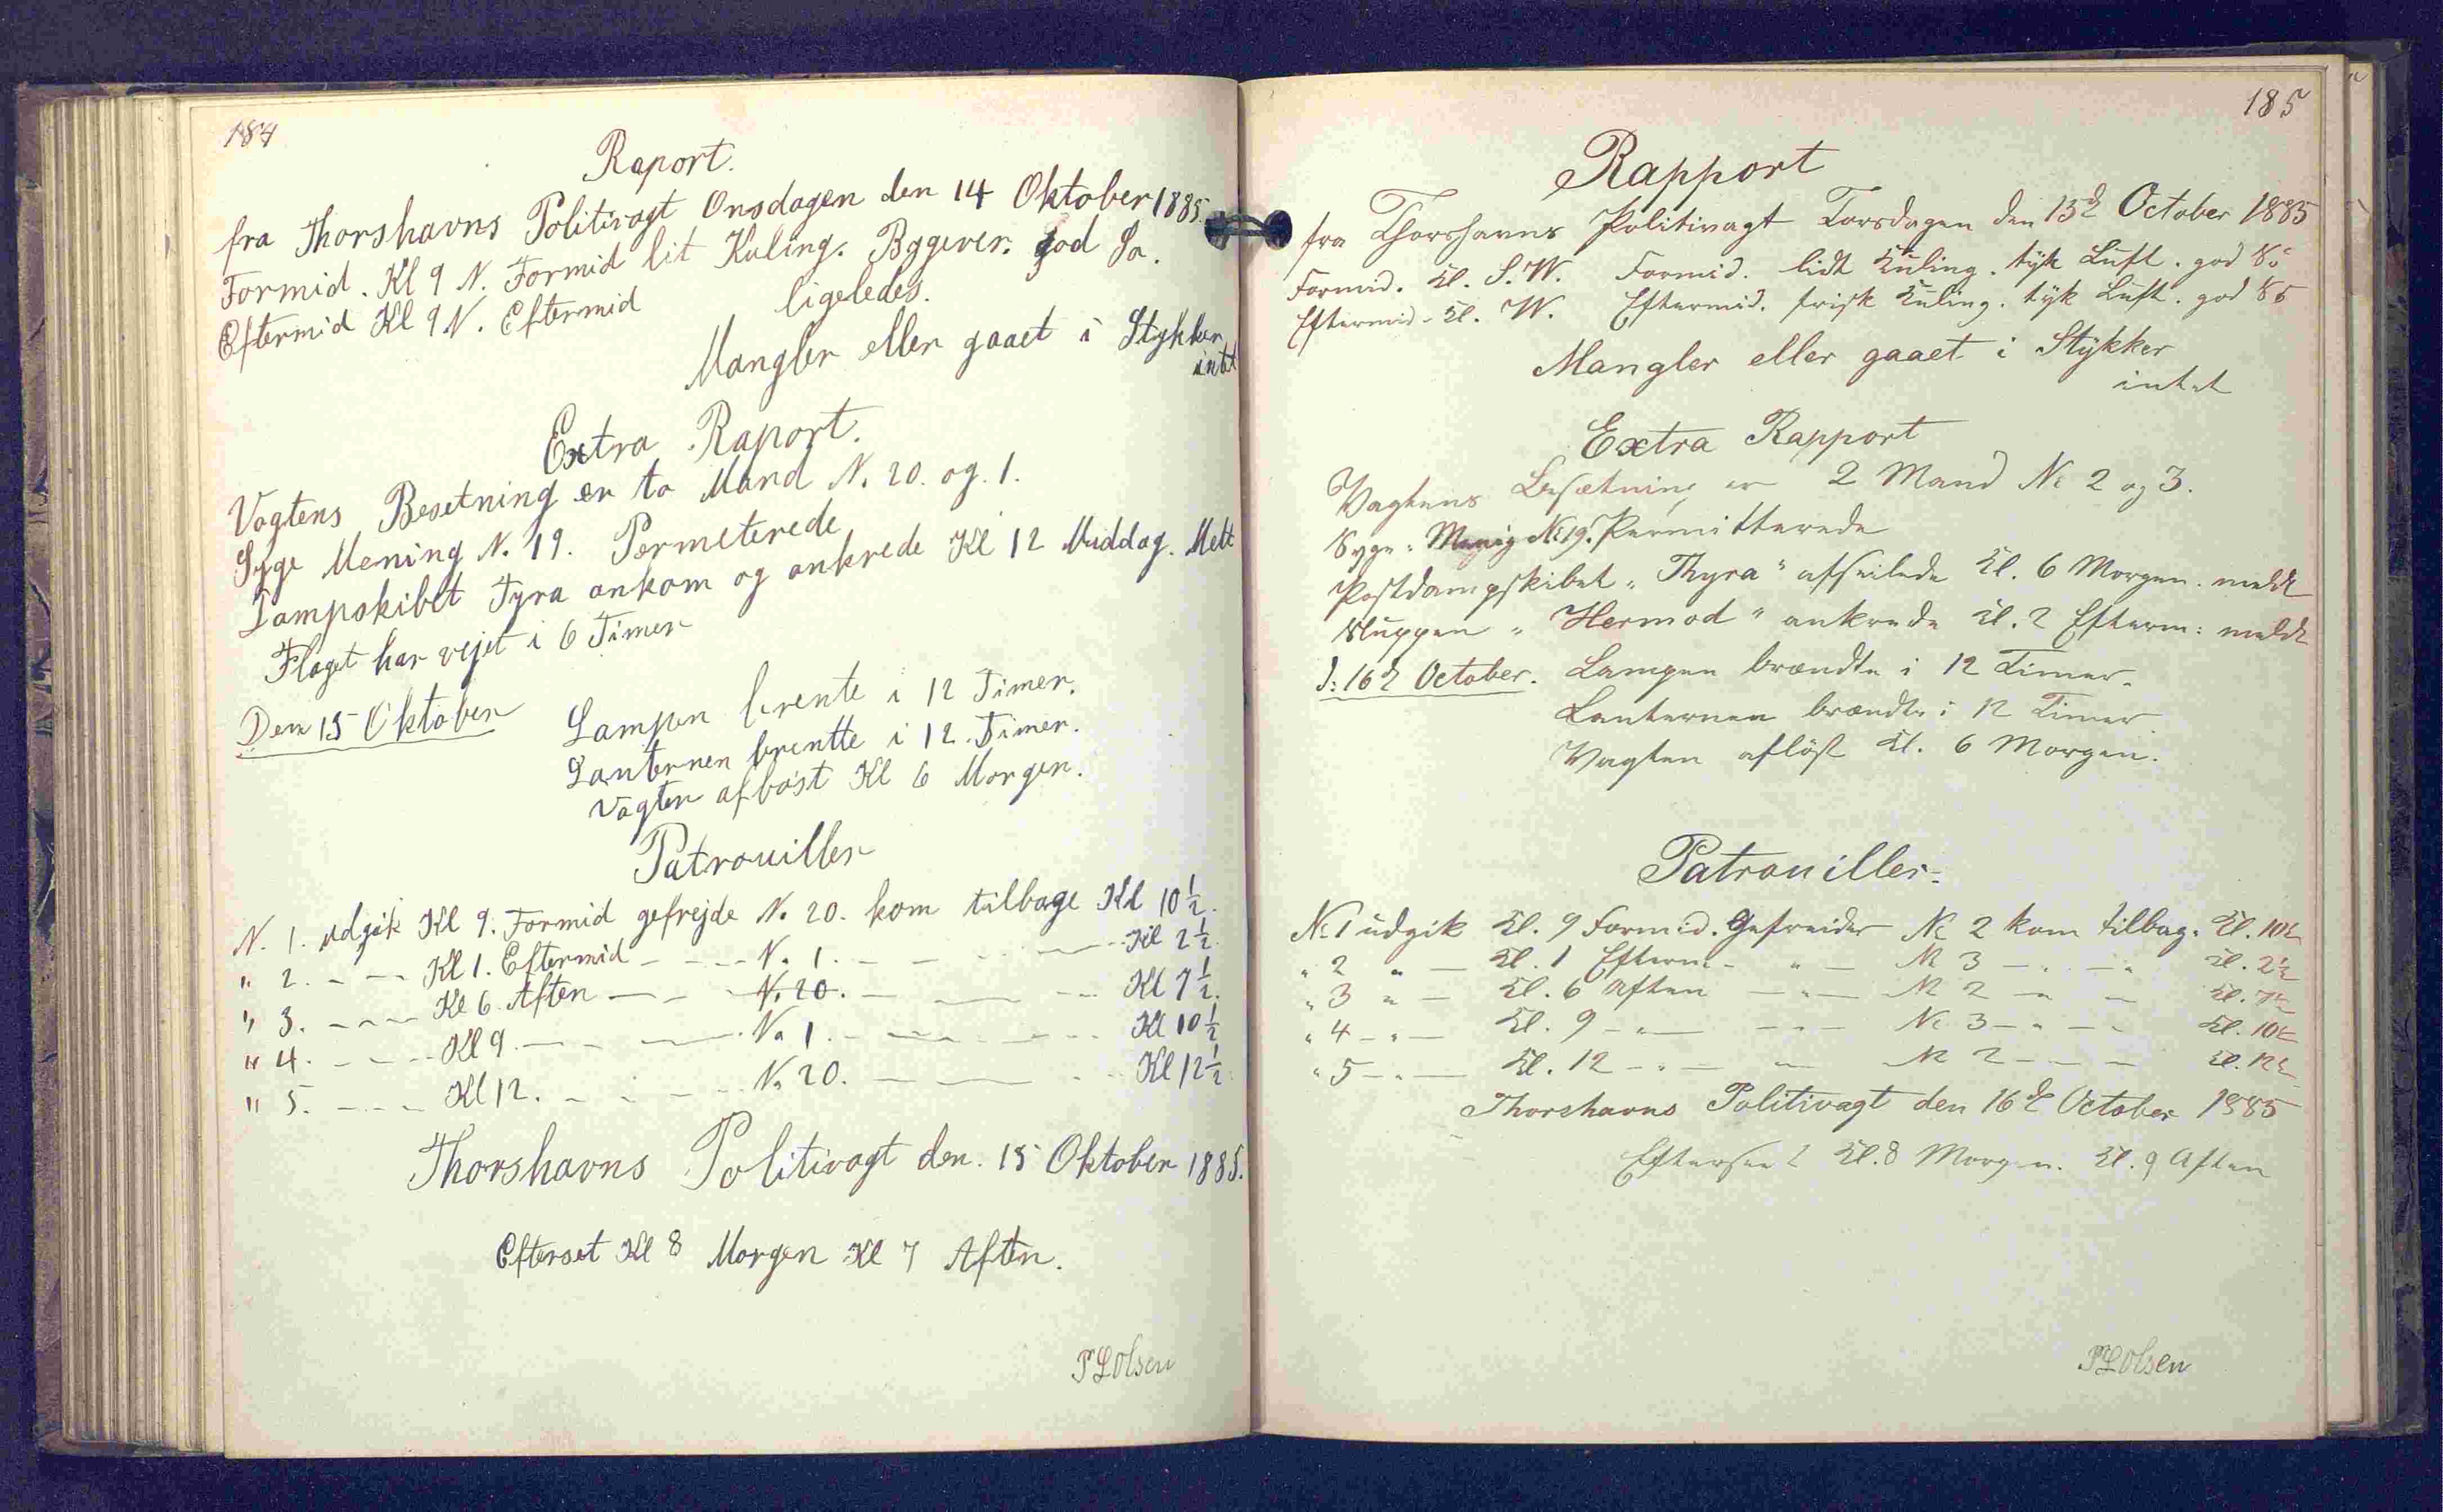 184
Raport.
fra Thorshavns Politivagt Onsdagen den 14 Oktober 1885.
Formid. Kl 9 N. Formid lit Kuling. Bygever. god So.
Eftermid Kl 9 N. Eftermid ligeledes.
Mangler eller gaaet i Stykker
intet
Extra Raport.
Vagtens Besetning er to Mand N. 20. og. 1.
Syge Mening N. 19. Permeterede
Dampskibet Tyra ankom og ankrede Kl 12 Middag. Melt
Flaget har vejet i 6 Timer
Den 15 Oktober Lampen brente i 12 Timer.
Lanternen brentte i 12. Timer.
Vagten afløst Kl 6 Morgen.
Patrouiller
N. 1. udgik Kl 9. Formid gefrejde N. 20. kom tilbage Kl 10½.
" 2. - - - Kl 1. Eftermid - - - N. 1. - - - - Kl 2½.
" 3. - - - Kl 6. Aften - - - N. 20. - - - Kl 7½.
" 4. - - - Kl 9. - - - N. 1. - - - - Kl 10½
" 5. - - - Kl 12. - - - N. 20. - - - - Kl 12½.
Thorshavns Politivagt den. 15 Oktober 1885.
Efterset Kl 8 Morgen Kl 7 Aften.
P L Olsen
185
Rapport
fra Thorshavns Politivagt Torsdagen den 15d October 1885
Formid. Kl. S.W. Formid. lidt Kuling. tyk Luft. god Sö
Eftermid. Kl. W. Eftermid. frisk Kuling. tyk Luft. god Sö
Mangler eller gaaet i Stykker
intet
Extra Rapport
Vagtens Besætning er 2 Mand No 2 og 3.
Syge: Menig No 19. Permitterede
Postdampskibet "Thyra" afseilede Kl. 6 Morgen. meldt
Sluppen "Hermod" ankrede Kl. 2 Efterm: meldt
d: 16d October. Lampen brændte i 12 Timer.
Lanternen brændte i 12 Timer
Vagten aflöst Kl. 6 Morgen.
Patrouiller.
No 1 udgik Kl. 9 Formid. Gefreider No 2 kom tilbage Kl. 10½
" 2 " - Kl. 1 Efterm - " - No 3 - " - " Kl. 2½
" 3 " - Kl. 6 Aften - " - No 2 - " - Kl. 7½
" 4 - " - Kl. 9 - " - - " - No 3 - " - - Kl. 10½
" 5 - " - Kl. 12 - " - - No 2 - - - Kl. 12½
Thorshavns Politivagt den 16d October 1885
Efterseet Kl. 8 Morgen. Kl. 9 Aften
P L Olsen